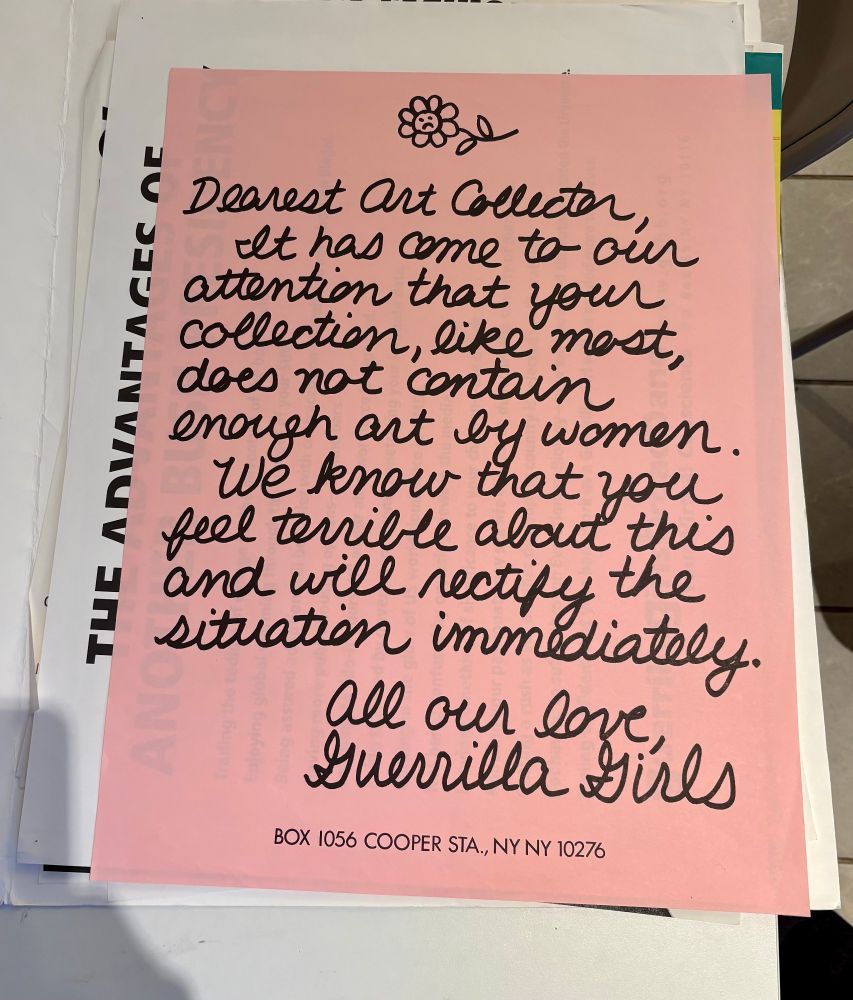 Dearest Art Collector,
It has come to our
attention that your
collection, like most,
does not contain
enough art by women.
We know that you
feel terrible about this
and will rectify the
situation immediately.
All our love,
Guerrilla Girls
BOX 1056 COOPER STA., NY NY 10276
THE ADVANTAGES OF